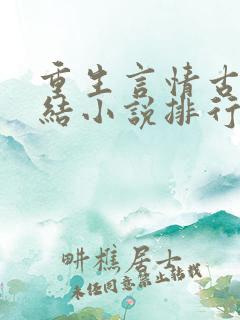 重生言情古
结小说排行
畊樵居士
未经同意禁止转载